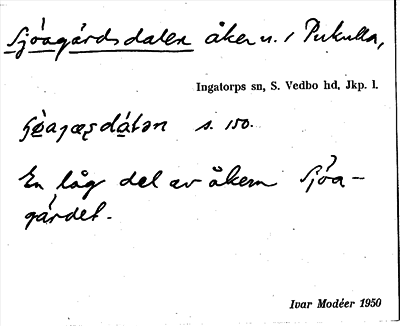 Sjöagårdsdalen åker n. i Pukulla,
Ingatorps sn, S. Vedbo hd, Jkp. l.
s. 150.
En låg del av åkern Sjöa-
gårdet.
Ivar Modéer 1950